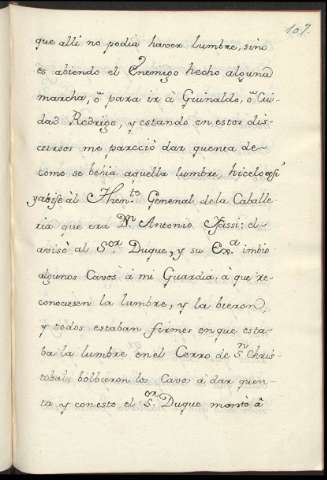 107.
que alli no podia haver lumbre, sino
es abiendo el Enemigo hecho alguna
marcha, ô para ir à Guinaldo, ô Ciu-
dad Redrigo, y estando en estos dis-
cursos me pareciò dar quenta de
como se beìia aquella lumbre, hicelo asi
y abisè al Then.te General de la Caballe-
ria que era D.n Antonio el
avisò al S.or Duque, y su Ex.a imbio
algunos Cavos à mi Guardia, à que re-
conociesen la lumbre, y la bieron,
y todos estaban firmes en que esta-
ba la lumbre en el Cerro de S.n Chris-
tobal: bolbieron los Cavos à dar quen-
ta y con esto el S.or Duque montò â